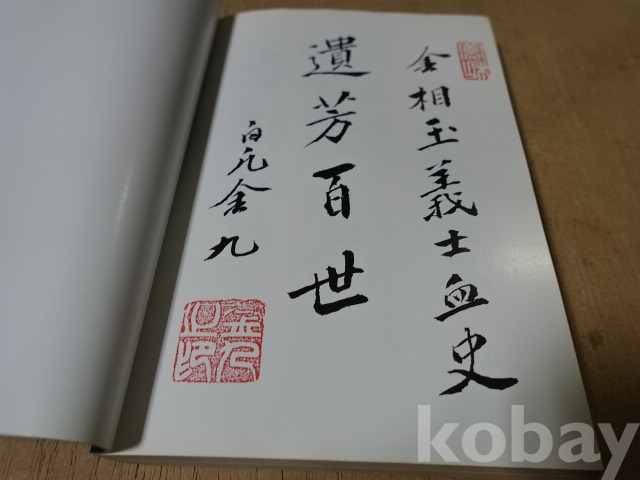 金相玉義士血史
遺芳百世
白凡金九
金九之印
kobay